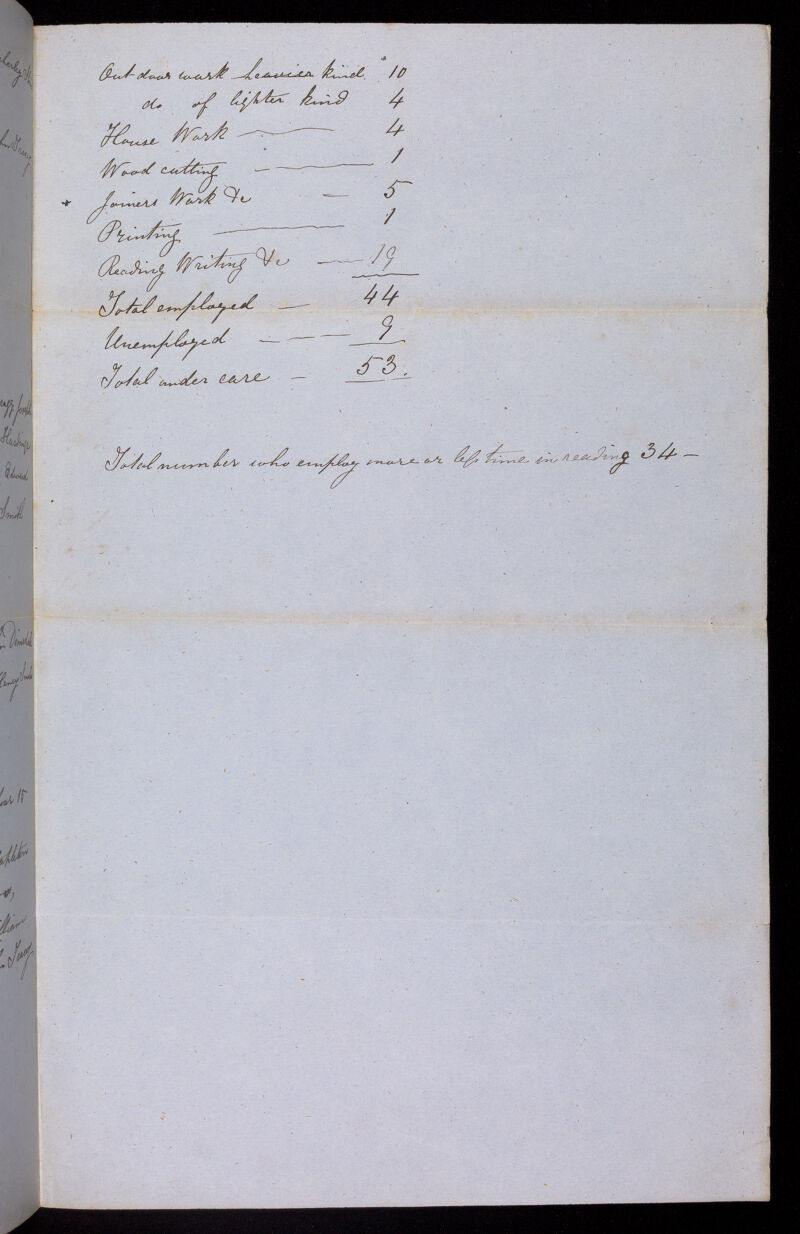 Out door work heavier kind " 10
do of lighter kind 4
House Work — 4
Wood cutting — 1
* Joiners Work &c — 5
Printing — 1
Reading Writing &c — 19
Total employed — 44
Unemployed — — — 9
Total under care — 53.
Total number who employ more or less time in reading 34 —
Edward
Smith